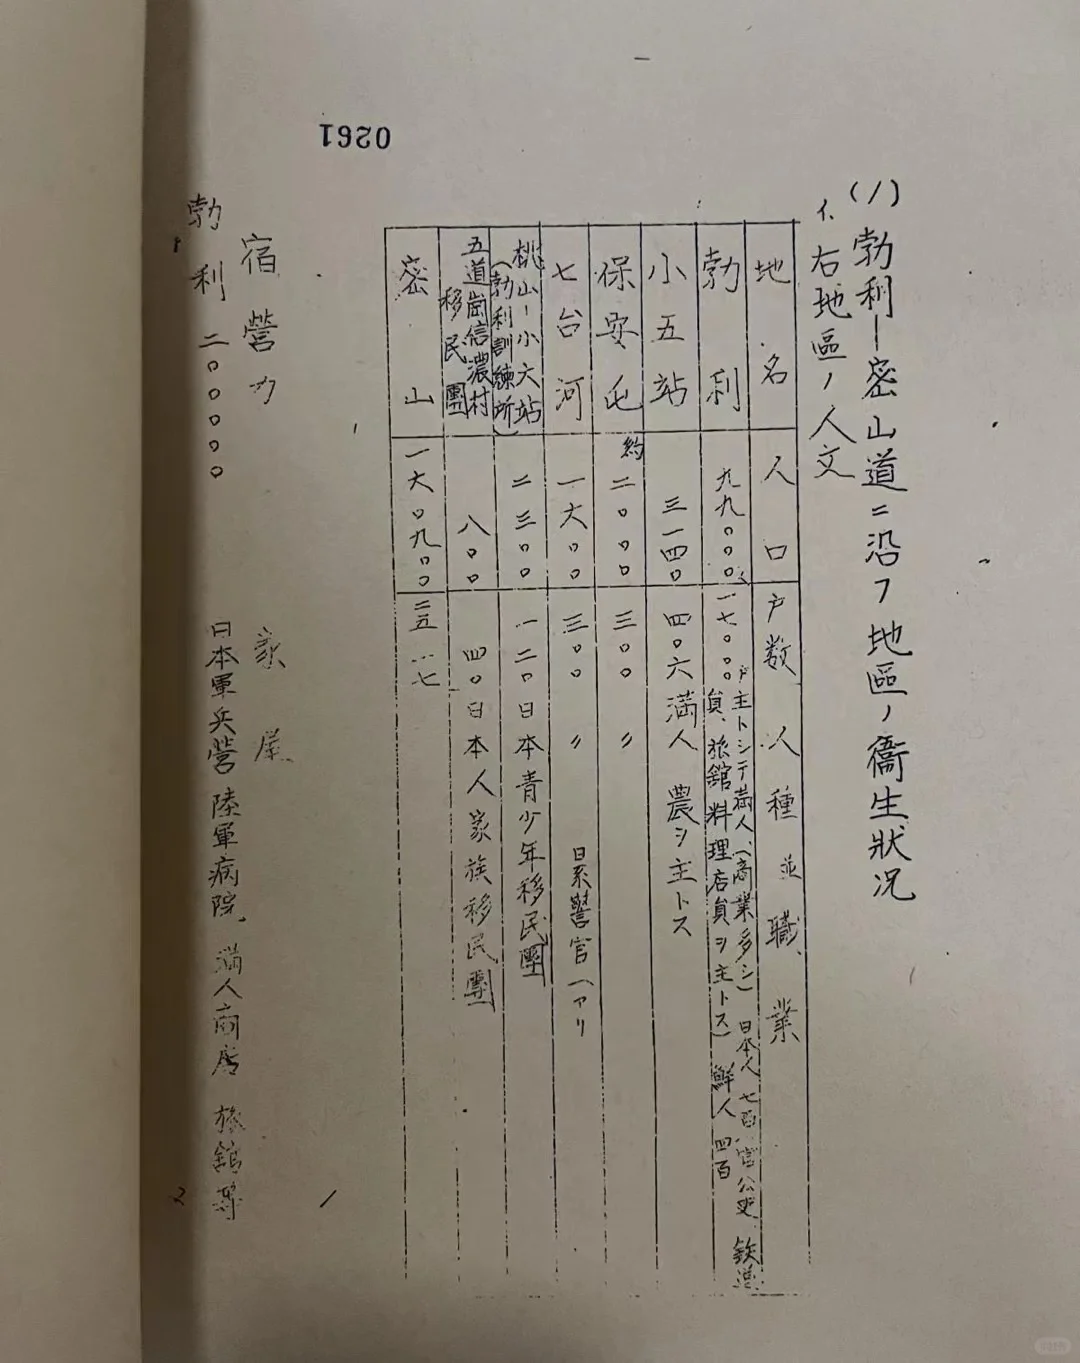 0261
(1) 勃利—密山道ニ沿フ地區ノ衞生狀況
イ、右地區ノ人文
地名 人口 戸数 人種並職業
勃利 九九〇〇〇 一七〇〇〇 戸主トシテ満人(商業多シ) 日本人 七百 官公吏、鉄道
員、旅館料理店員ヲ主トス) 鮮人 四百
小五站 三一四〇 四〇六 満人 農ヲ主トス
保安屯 約二〇〇〇 三〇〇 〃
七台河 一六〇〇 三〇〇 〃 日系警官一アリ
桃山—小六站 二三〇〇 一二〇 日本青少年移民團
(勃利訓練所)
五道崗信濃村 八〇〇 四〇 日本人家族移民團
移民團
密山 一六〇九〇〇 二五一一七
宿營力 家屋
勃利 二〇〇〇〇〇 日本軍兵營 陸軍病院、満人商店 旅館等